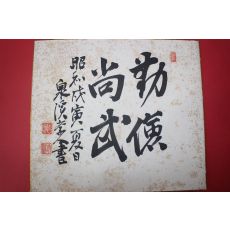 勤倹
尚武
昭和戊寅夏日
泉渓京人書